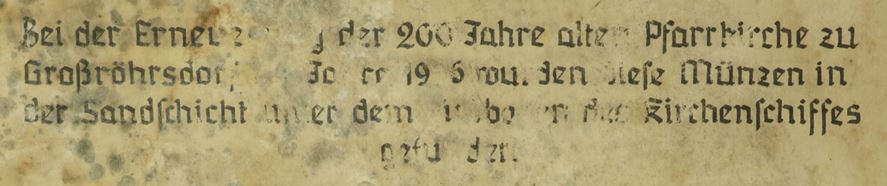 Bei der Erneuerung der 200 Jahre alten Pfarrkirche zu
Großröhrsdorf im Jahre 19 6 wurden diese Münzen in
der Sandschicht unter dem Fußboden des Kirchenschiffes
gefunden.